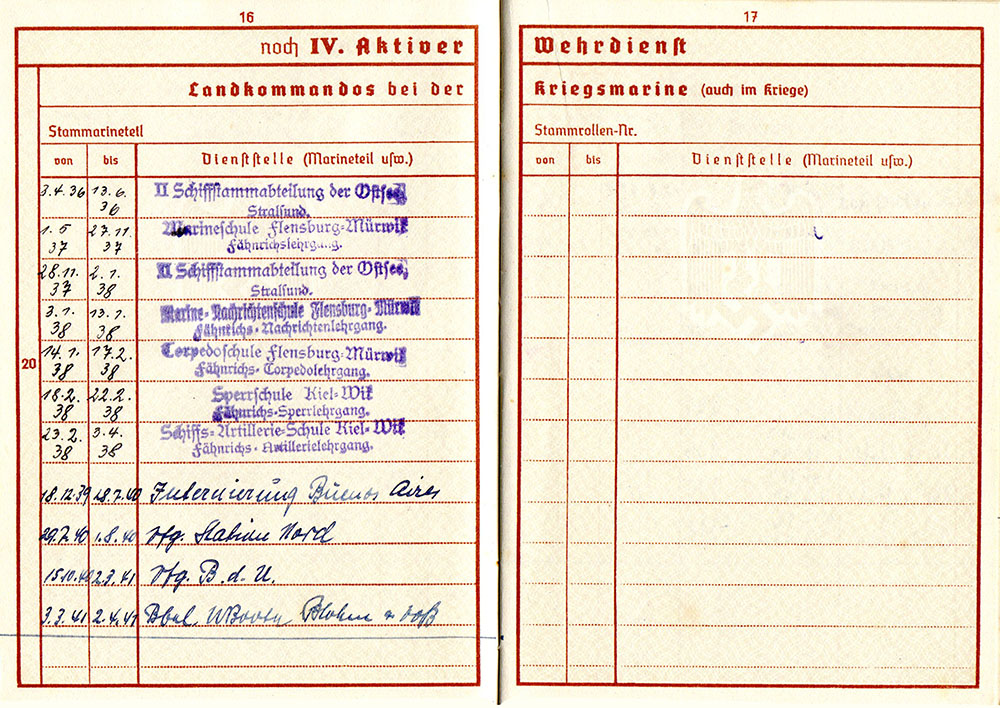 16
noch IV. Aktiver
Landkommandos bei der
Stammarineteil
von bis Dienststelle (Marineteil usw.)
3.4.36 13.6.36 II Schiffstammabteilung der Ostsee,
Stralsund.
1.5 37 27.11.37 Marineschule Flensburg-Mürwik
Fähnrichslehrg...g.
28.11.37 2.1.38 II Schiffstammabteilung der Ostsee,
Stralsund.
3.1.38 13.1.38 Marine-Nachrichtenschule Flensburg-Mürwik
Fähnrichs-Nachrichtenlehrgang.
14.1.38 17.2.38 Torpedoschule Flensburg-Mürwik
Fähnrichs-Torpedolehrgang.
20
18.2.38 22.2.38 Sperrschule Kiel-Wik
Fähnrichs-Sperrlehrgang.
23.2.38 3.4.38 Schiffs-Artillerie-Schule Kiel-Wik
Fähnrichs-Artillerielehrgang.
18.12.39 28.7.40 Internierung Buenos Aires
29.7.40 1.8.40 Vfg. Station Nord
15.10.40 2.3.41 Vfg. B.d.U.
3.3.41 2.4.41 Bbel. UBoote Blohm & Voß
17
Wehrdienst
Kriegsmarine (auch im Kriege)
Stammrollen-Nr.
von bis Dienststelle (Marineteil usw.)